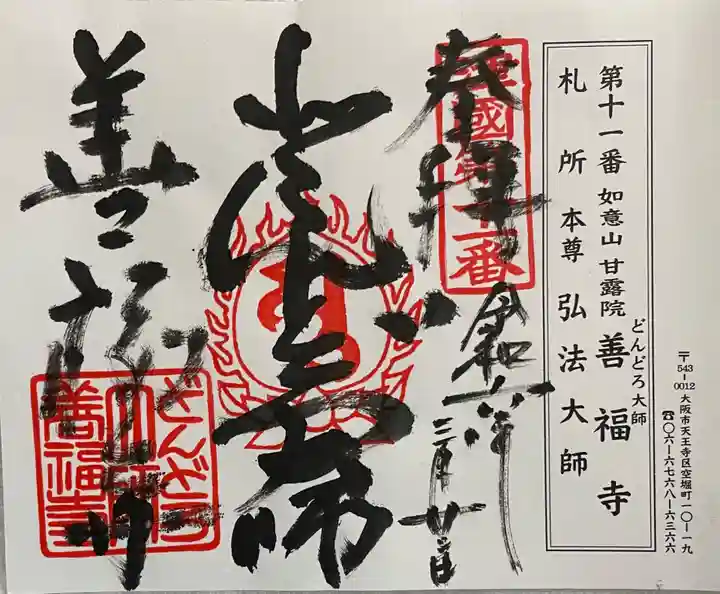 第十一番 如意山 甘露院 善福寺
どんどろ大師
札所本尊 弘法大師
〒543-0012 大阪市天王寺区空堀町一〇-一九
☎〇六-六七六八-六三六六
奉拝
令和六年
三月廿一日
第十一番
善福寺
どんどろ
大師
善福寺